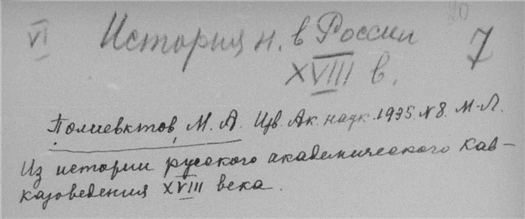 VI История н. в России 7
XVIII в.
Полиевктов, М. А. Изв. Ак. наук. 1935. N8. М-Л.
Из истории русского академического кав-
казоведения XVIII века.